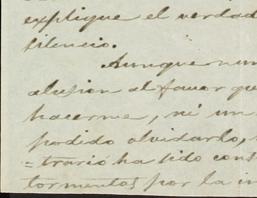 explique el verdad
silencio.
Aunque nun
alusion al favor que
hacerme, ni un
podido olvidarlo,
=trario ha sido cons
tormentos por la in